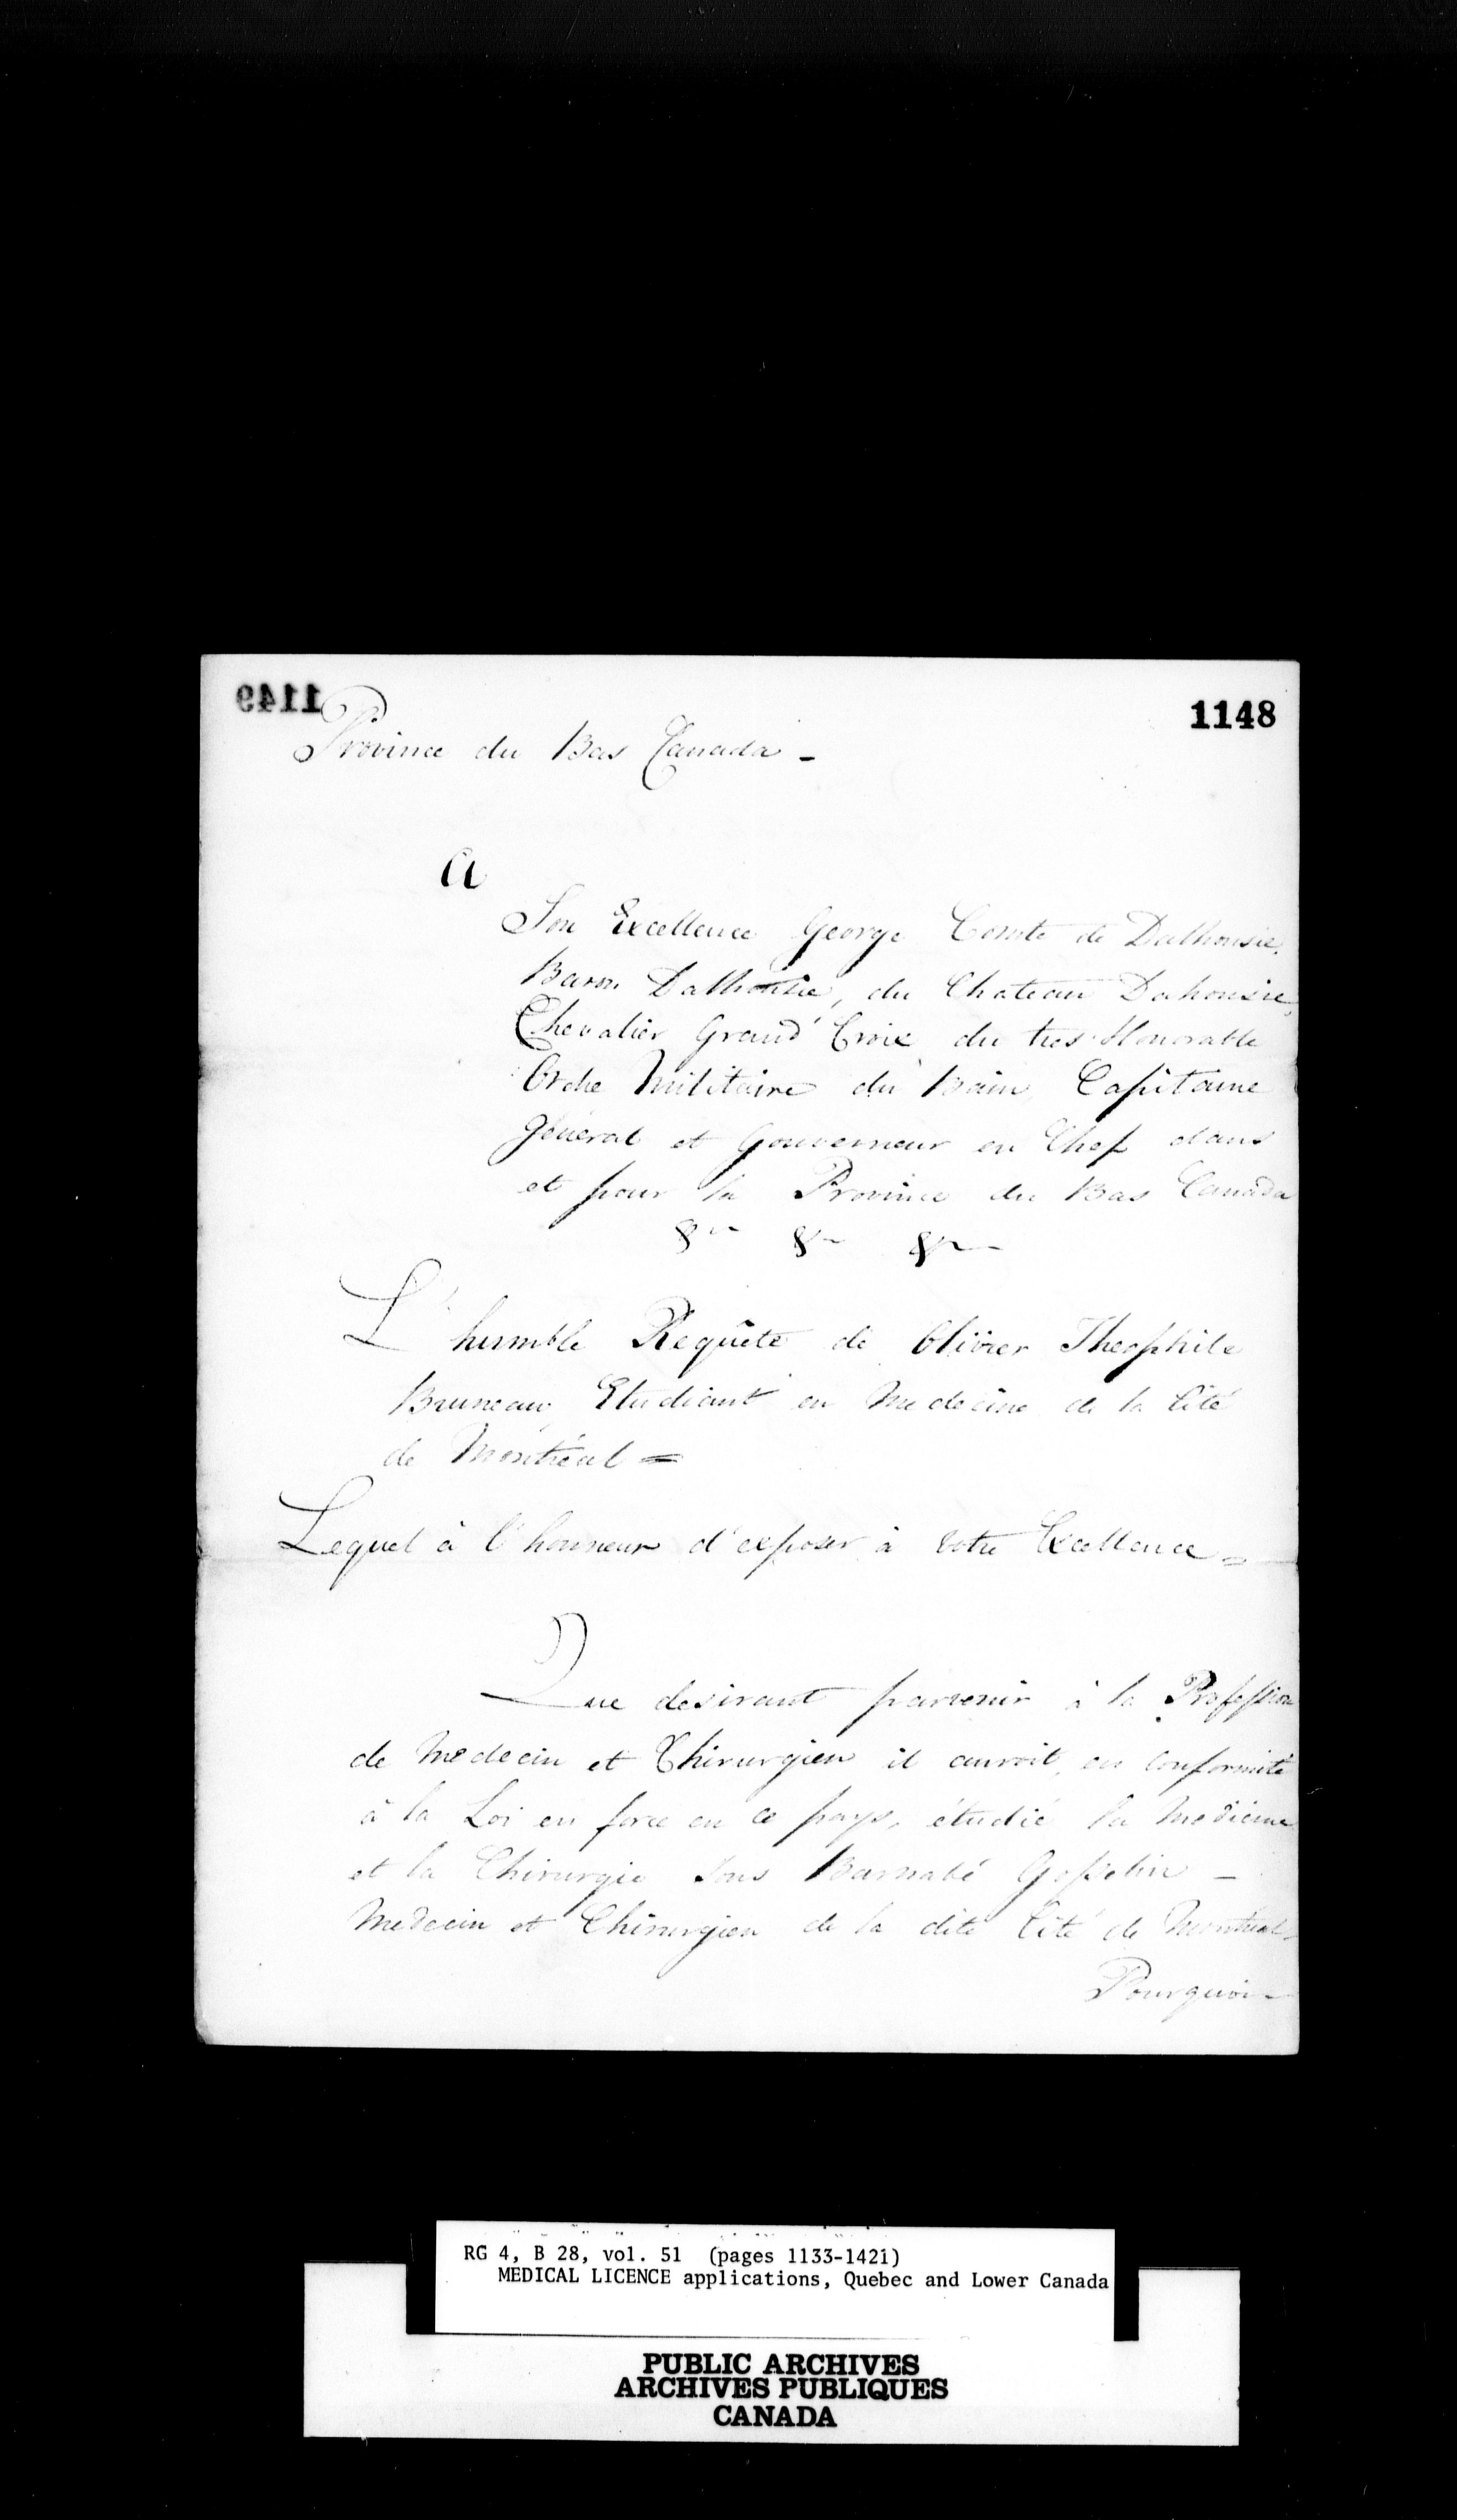 1149
1148
Province du Bas Canada -
A
Son Excellence George Comte de Dalhousie,
Baron Dalhousie, du Chateau Dahousie,
Chevalier Grand Croix du tres Honorable
Ordre Militaire du Bain, Capitaine
Général et Gouverneur en Chef dans
et pour la Province du Bas Canada
&c &c &c
L'humble Requête de Olivier Theophile
Bruneau, Etudiant en Medecine de la Cité
de Montréal =
Lequel à l'honneur d'exposer à Votre Excellence =
Que desirant parvenir à la Profession
de Medecin et Chirurgien il auroit, en conformité
à la Loi en force en ce pays, étudié la Medicine
et la Chirurgie sous Barnabé Gosselin -
Medecin et Chirurgien de la dite Cité de Montréal,
Pourquoi -
RG 4, B 28, vol. 51 (pages 1133-1421)
MEDICAL LICENCE applications, Quebec and Lower Canada
PUBLIC ARCHIVES
ARCHIVES PUBLIQUES
CANADA